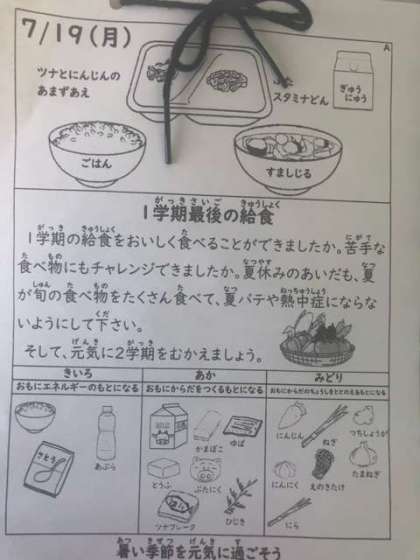 7/19(月)
A
ツナとにんじんの
あまずあえ
スタミナどん
ぎゅう
にゅう
ごはん
すましじる
がっきさいご きゅうしょく
1学期最後の給食
がっき きゅうしょく た にがて
1学期の給食をおいしく食べることができましたか。苦手な
た もの なつやす なつ
食べ物にもチャレンジできましたか。夏休みのあいだも、夏
しゅん た もの た なつ ねっちゅうしょう
が旬の食べ物をたくさん食べて、夏バテや熱中症にならな
くだ
いようにして下さい。
げんき がっき
そして、元気に2学期をむかえましょう。
きいろ あか みどり
おもにエネルギーのもとになる おもにからだをつくるもとになる おもにからだのちょうしをととのえるもとになる
さとう
あぶら
かまぼこ
ゆば
とうふ
ぶたにく
ツナフレーク
ひじき
にんじん
ねぎ
つちしょうが
にんにく
えのきたけ
たまねぎ
にら
あつ きせつ げんき す
暑い季節を元気に過ごそう